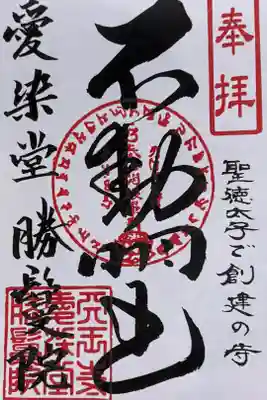 奉拝
聖徳太子で創建の寺
不動明王
愛染堂 勝鬘院